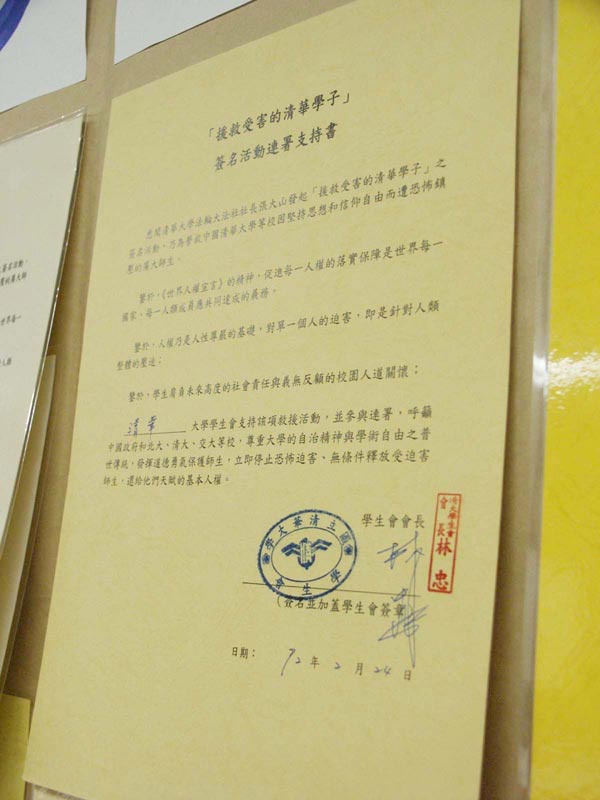 「援救受害的清華學子」
簽名活動連署支持書
悉聞清華大學法輪大法社社長張大山發起「援救受害的清華學子」之
簽名活動，乃為聲救中國清華大學等校因堅持思想和信仰自由而遭恐怖鎮
壓的廣大師生。
鑒於，《世界人權宣言》的精神，促進每一人權的落實保障是世界每一
國家、每一人類成員應共同達成的義務。
鑒於，人權乃是人性尊嚴的基礎，對單一個人的迫害，即是針對人類
整體的壓迫；
鑒於，學生肩負未來高度的社會責任與義無反顧的校園人道關懷；
清華 大學學生會支持該項救援活動，並參與連署，呼籲
中國政府和北大、清大、交大等校，尊重大學的自治精神與學術自由之普
世傳統，發揮道德勇氣保護師生，立即停止恐怖迫害、無條件釋放受迫害
師生，還給他們天賦的基本人權。
學生會會長
清大學生會
會長 林忠
國立清華大學
學生會
（簽名並加蓋學生會簽章
日期： 92 年 2 月 24 日